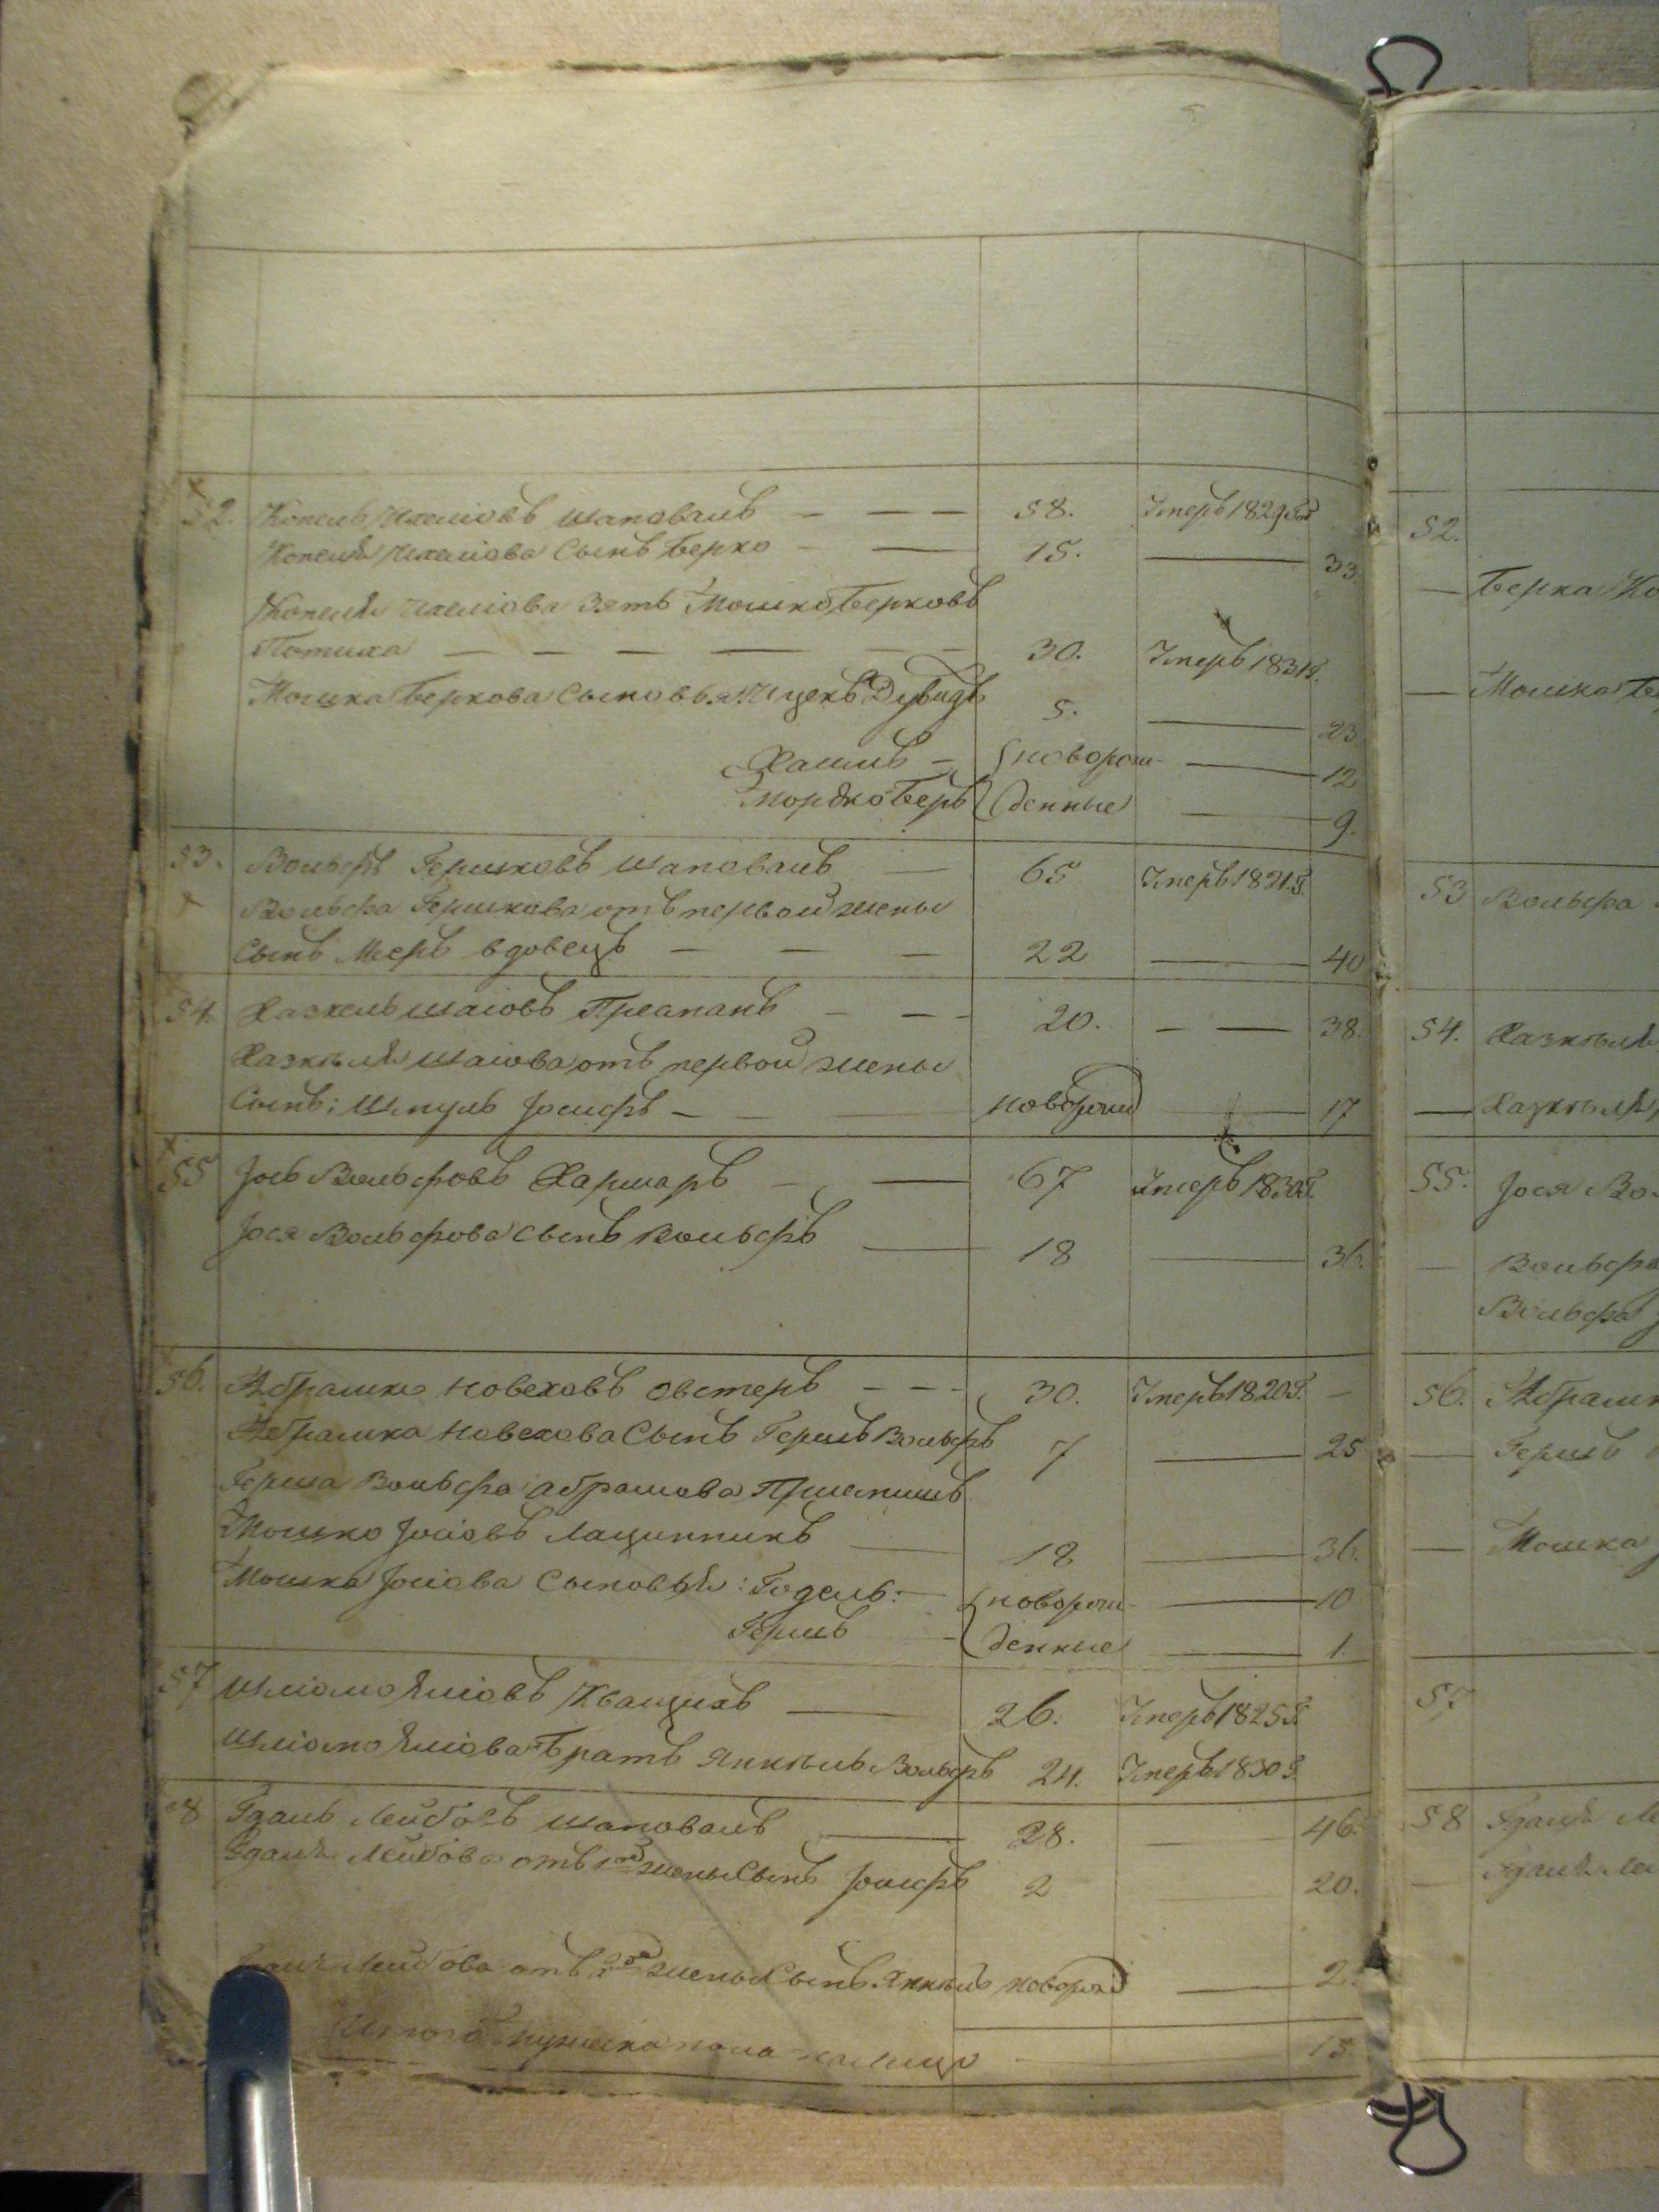 52. Копель Ихеліовъ Шаповалъ — — — 58. Умеръ 1829 год
Копеля Ихеліова Сынъ Берко — — 15. — 33.
Копеля Ихеліова Зять Мошко Берковъ
Потиха — — — — — — 30. Умеръ 1831 г.
Мошка Беркова Сыновья: Ицекъ Дувидъ 5. — 23
Хаимъ — новорож- — 12
Мордко Беръ денные — 9.
53. Вольфъ Гершковъ Шаповалъ — 65 Умеръ 1821 г.
Вольфа Гершкова отъ первой жены
Сынъ Мееръ вдовецъ — — — 22 — 40
54. Хазкель Шаіовъ — — - 20. — — 38.
Хазкеля Шаіова отъ первой жены
Сынъ: Шмуль Іосифъ — — — новорож — 17
55 Іось Вольфовъ Харшаръ — — 67 Умеръ 1830 г.
Іося Вольфова Сынъ Вольфъ — 18 — 36.
56. Абрамко Новеховъ Овстеръ — — - 30. Умеръ 1820 г. —
Абрамка Новехова Сынъ Гершъ Вольфъ 7 — 25
Герша Вольфа Абрамова
Мошко Іосіовъ — 18 — 36.
Мошка Іосіова Сыновья: Годель: — новорож- — 10
Гершъ — денные — 1.
57 Шліомо Еліовъ Кващукъ — 26. Умеръ 1825 г.
Шліомо Еліова Братъ Янкель Вольфъ 24. Умеръ 1830 г.
58 Гдаль Лейбовъ Шаповалъ — 28. — 46.
Гдаля Лейбова отъ 1ой жены Сынъ Іосифъ 2 — 20.
Гдаля Лейбова отъ 2ой жены Сынъ Янкель новорож — 2.
Итого мужеска пола на лицо — 15
52.
— Берка Ко
— Мошка Бе
53 Вольфа
54. Хазкеля
— Хазкеля
55. Іося Во
— Вольфа
Вольфа І
56. Абрамк
— Гершъ
— Мошка І
57
58 Гдаля Ле
— Гдаля Ле